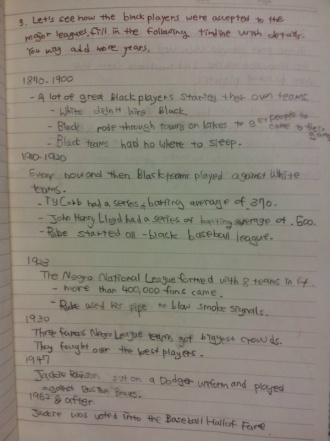 3. Let's see how the black players were accepted to the
major leagues, fill in the following timline with details.
You may add more years.
1890-1900
- A lot of great Black players staring their own teams
- White didn't hire Black
- Black rode through towns on bikes to get people to come to the game
- Black teams had no where to sleep.
1910-1920
Every now and then Black teams played against White
teams.
- Ty Cobb had a series batting average of .370.
- John Henry Lloyd had a series of batting average of .500.
- Rube started all-black baseball league.
1923
The Negro National League formed with 8 teams in it.
- more than 400,000 fans came.
- Rube used his pipe to blow smoke signals.
1930
Three famous Negro League teams got biggest crowds.
They fought over the best players.
1947
Jackie Robinson put on a Dodger uniform and played
against Boston Braves.
1962 & after
Jackie was voted into the Baseball Hall of Fame